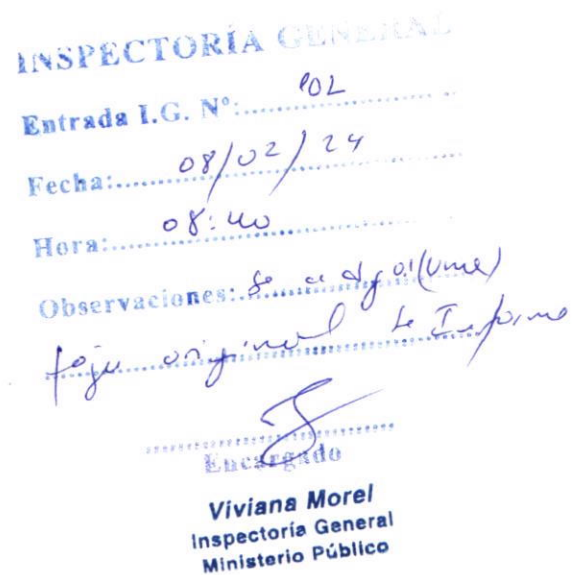 INSPECTORÍA GENERAL
Entrada I.G. Nº:
Fecha: 08/02/24
Hora: 08:40
Observaciones: Se a (una)
foja original de Informe
Encargado
Viviana Morel
Inspectoría General
Ministerio Público